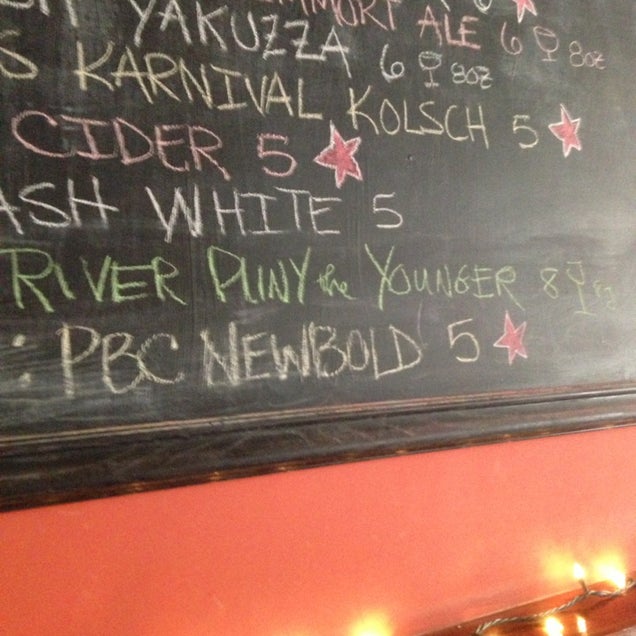 ALE 6 8oz
YAKUZZA 6 8oz
S KARNIVAL KOLSCH 5
CIDER 5
ASH WHITE 5
RIVER PLINY the YOUNGER 8 8oz
: PBC NEWBOLD 5